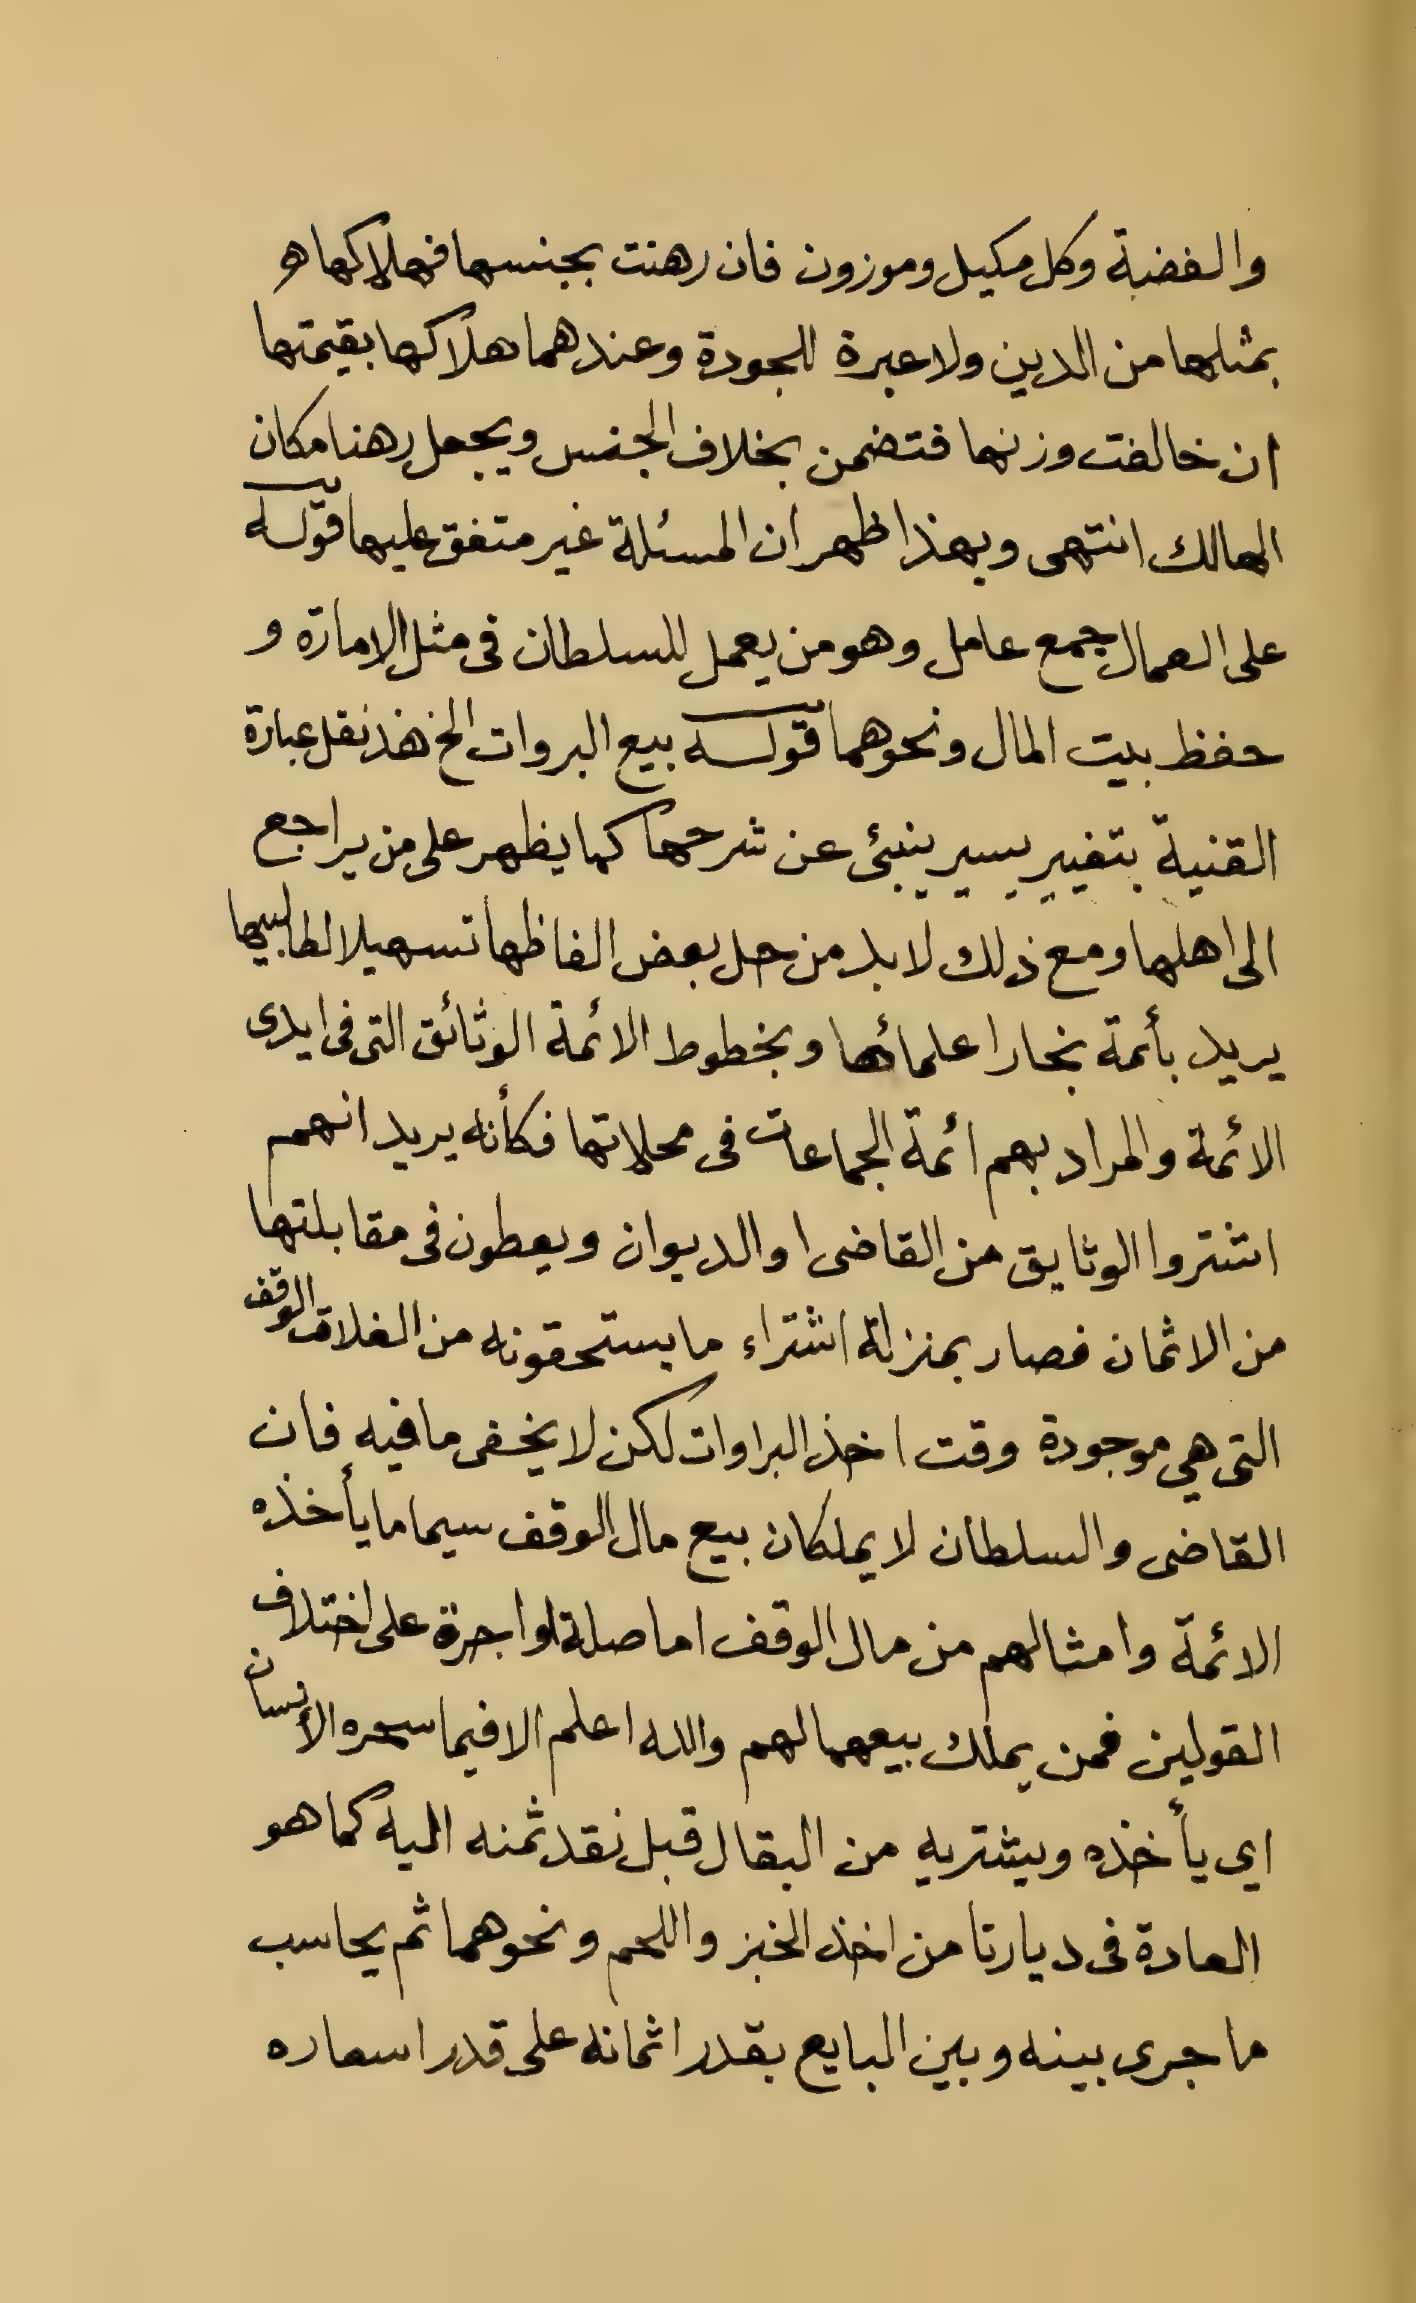 والفضة وكل مكيل وموزون فان رهنت بجنسها فهلاكها هو
بمثلها من الدين ولا عبرة للجودة وعندهما هلاكها بقيمتها
ان خالفت وزنها فتضمن بخلاف الجنس ويجعل رهنا مكان
الهالك انتهى وبهذا ظهر ان المسئلة غير متفق عليها قوله
على العمال جمع عامل وهو من يعمل للسلطان فى مثل الامارة و
حفظ بيت المال ونحوهما قوله بيع البروات الخ هذ نقل عبارة
القنية بتغيير يسير ينبئ عن شرحها كما يظهر على من يراجع
الى اهلها ومع ذلك لا بد من حل بعض الفاظها تسهيلا لطالبيها
يريد بأئمة بخارا علمائها وبخطوط الائمة الوثائق التى فى ايدى
الائمة والمراد بهم ائمة الجماعات فى محلاتها فكأنه يريد انهم
اشتروا الوثايق من القاضى او الديوان ويعطون فى مقابلتها
من الاثمان فصار بمنزلة اشتراء ما يستحقونه من الغلات الوقف
التى هي موجودة وقت اخذ البراوات لكن لا يخفى ما فيه فان
القاضى والسلطان لا يملكان بيع مال الوقف سيما ما يأخذه
الائمة وامثالهم من مال الوقف اما صلة او اجرة على اختلاف
القولين فمن يملك بيعهما لهم والله اعلم الا فيما الأنسان
اي يأخذه ويشتريه من البقال قبل نقد ثمنه اليه كما هو
العادة فى ديارنا من اخذ الخبز واللحم ونحوهما ثم يحاسب
ما جرى بينه وبين البايع بقدر اثمانه على قدر اسعاره